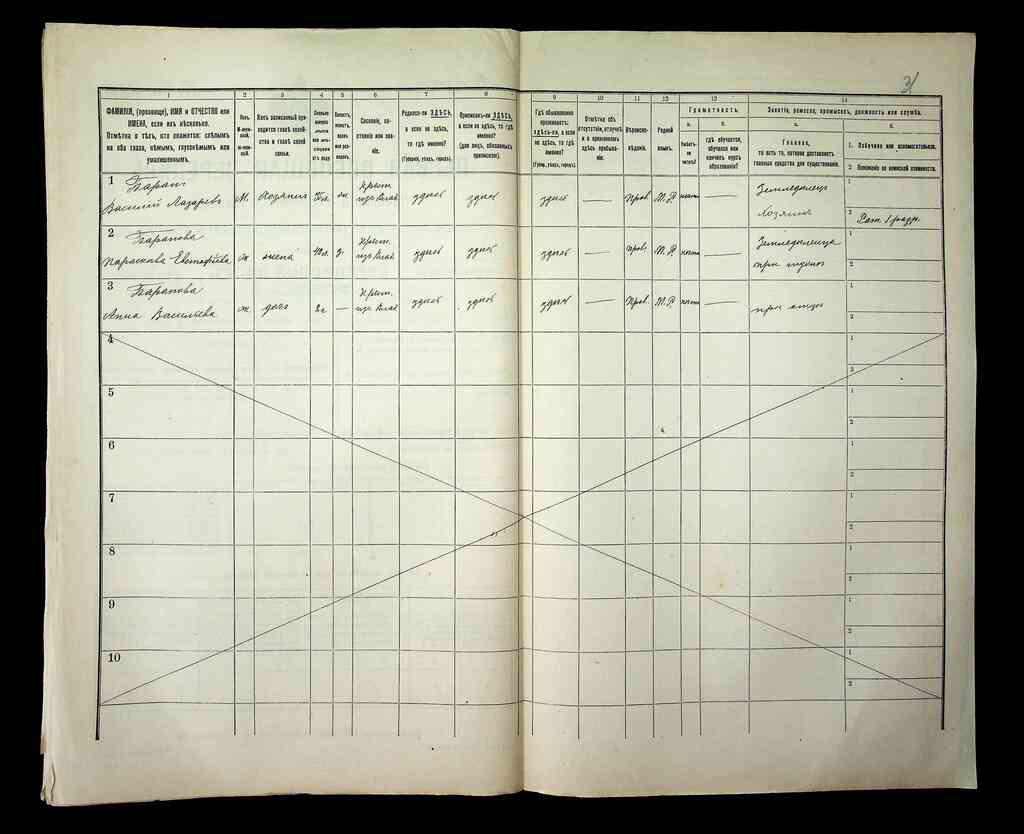 3
1
2
3
4
5
6
7
8
9
10
11
12
13
14
ФАМИЛІЯ, (прозвище), ИМЯ и ОТЧЕСТВО или
ИМЕНА, если ихъ нѣсколько.
Отмѣтка о тѣхъ, кто окажется: слѣпымъ
на оба глаза, нѣмымъ, глухонѣмымъ или
умалишеннымъ.
Полъ.
М-муж-
ской.
Ж-жен-
ской.
Какъ записанный при-
ходится главѣ хозяй-
ства и главѣ своей
семьи.
Сколько
минуло
лѣтъ
Холостъ,
женатъ,
вдовъ
или раз-
веденъ.
Сословіе, со-
стояніе или зва-
ніе.
Родился-ли ЗДѢСЬ,
а если не здѣсь,
то гдѣ именно?
(Губернія, уѣздъ, городъ).
Приписанъ-ли ЗДѢСЬ,
а если не здѣсь, то гдѣ
именно?
(для лицъ, обязанныхъ
припискою).
Гдѣ обыкновенно
проживаетъ:
здѣсь-ли, а если
не здѣсь, то гдѣ
именно?
(Губер., уѣздъ, городъ).
Отмѣтка объ
отсутствіи, отлучкѣ
и о временномъ
здѣсь пребыва-
ніи.
Вѣроиспо-
вѣданіе.
Родной
языкъ.
Грамотность.
а.
Умѣетъ-
ли
читать?
б.
гдѣ обучается,
обучался или
кончилъ курсъ
образованія?
Занятіе, ремесло, промыселъ, должность или служба.
а.
Главное,
то есть то, которое доставляетъ
главныя средства для существованія.
б.
1. Побочное или вспомогательное.
2 Положеніе по воинской повинности.
1
Василій Лазаревъ
М.
Хозяинъ
Крест.
здѣсь
здѣсь
здѣсь
—
Прав.
М. Р.
—
Земледѣлецъ
Хозяинъ
1
2 Рат. 1 разр.
2 Тарапова
Параскева Евстафіева
ж
жена
40 л.
з.
Крест.
здѣсь
здѣсь
здѣсь
—
Прав.
М. Р.
—
Земледѣлица
при мужѣ
1
2
3 Тарапова
Анна Васильева
ж.
дочь
—
Крест.
здѣсь
здѣсь
здѣсь
—
Прав.
М. Р.
—
при отцѣ
1
2
4
1
2
5
1
2
6
1
2
7
1
2
8
1
2
9
1
2
10
1
2